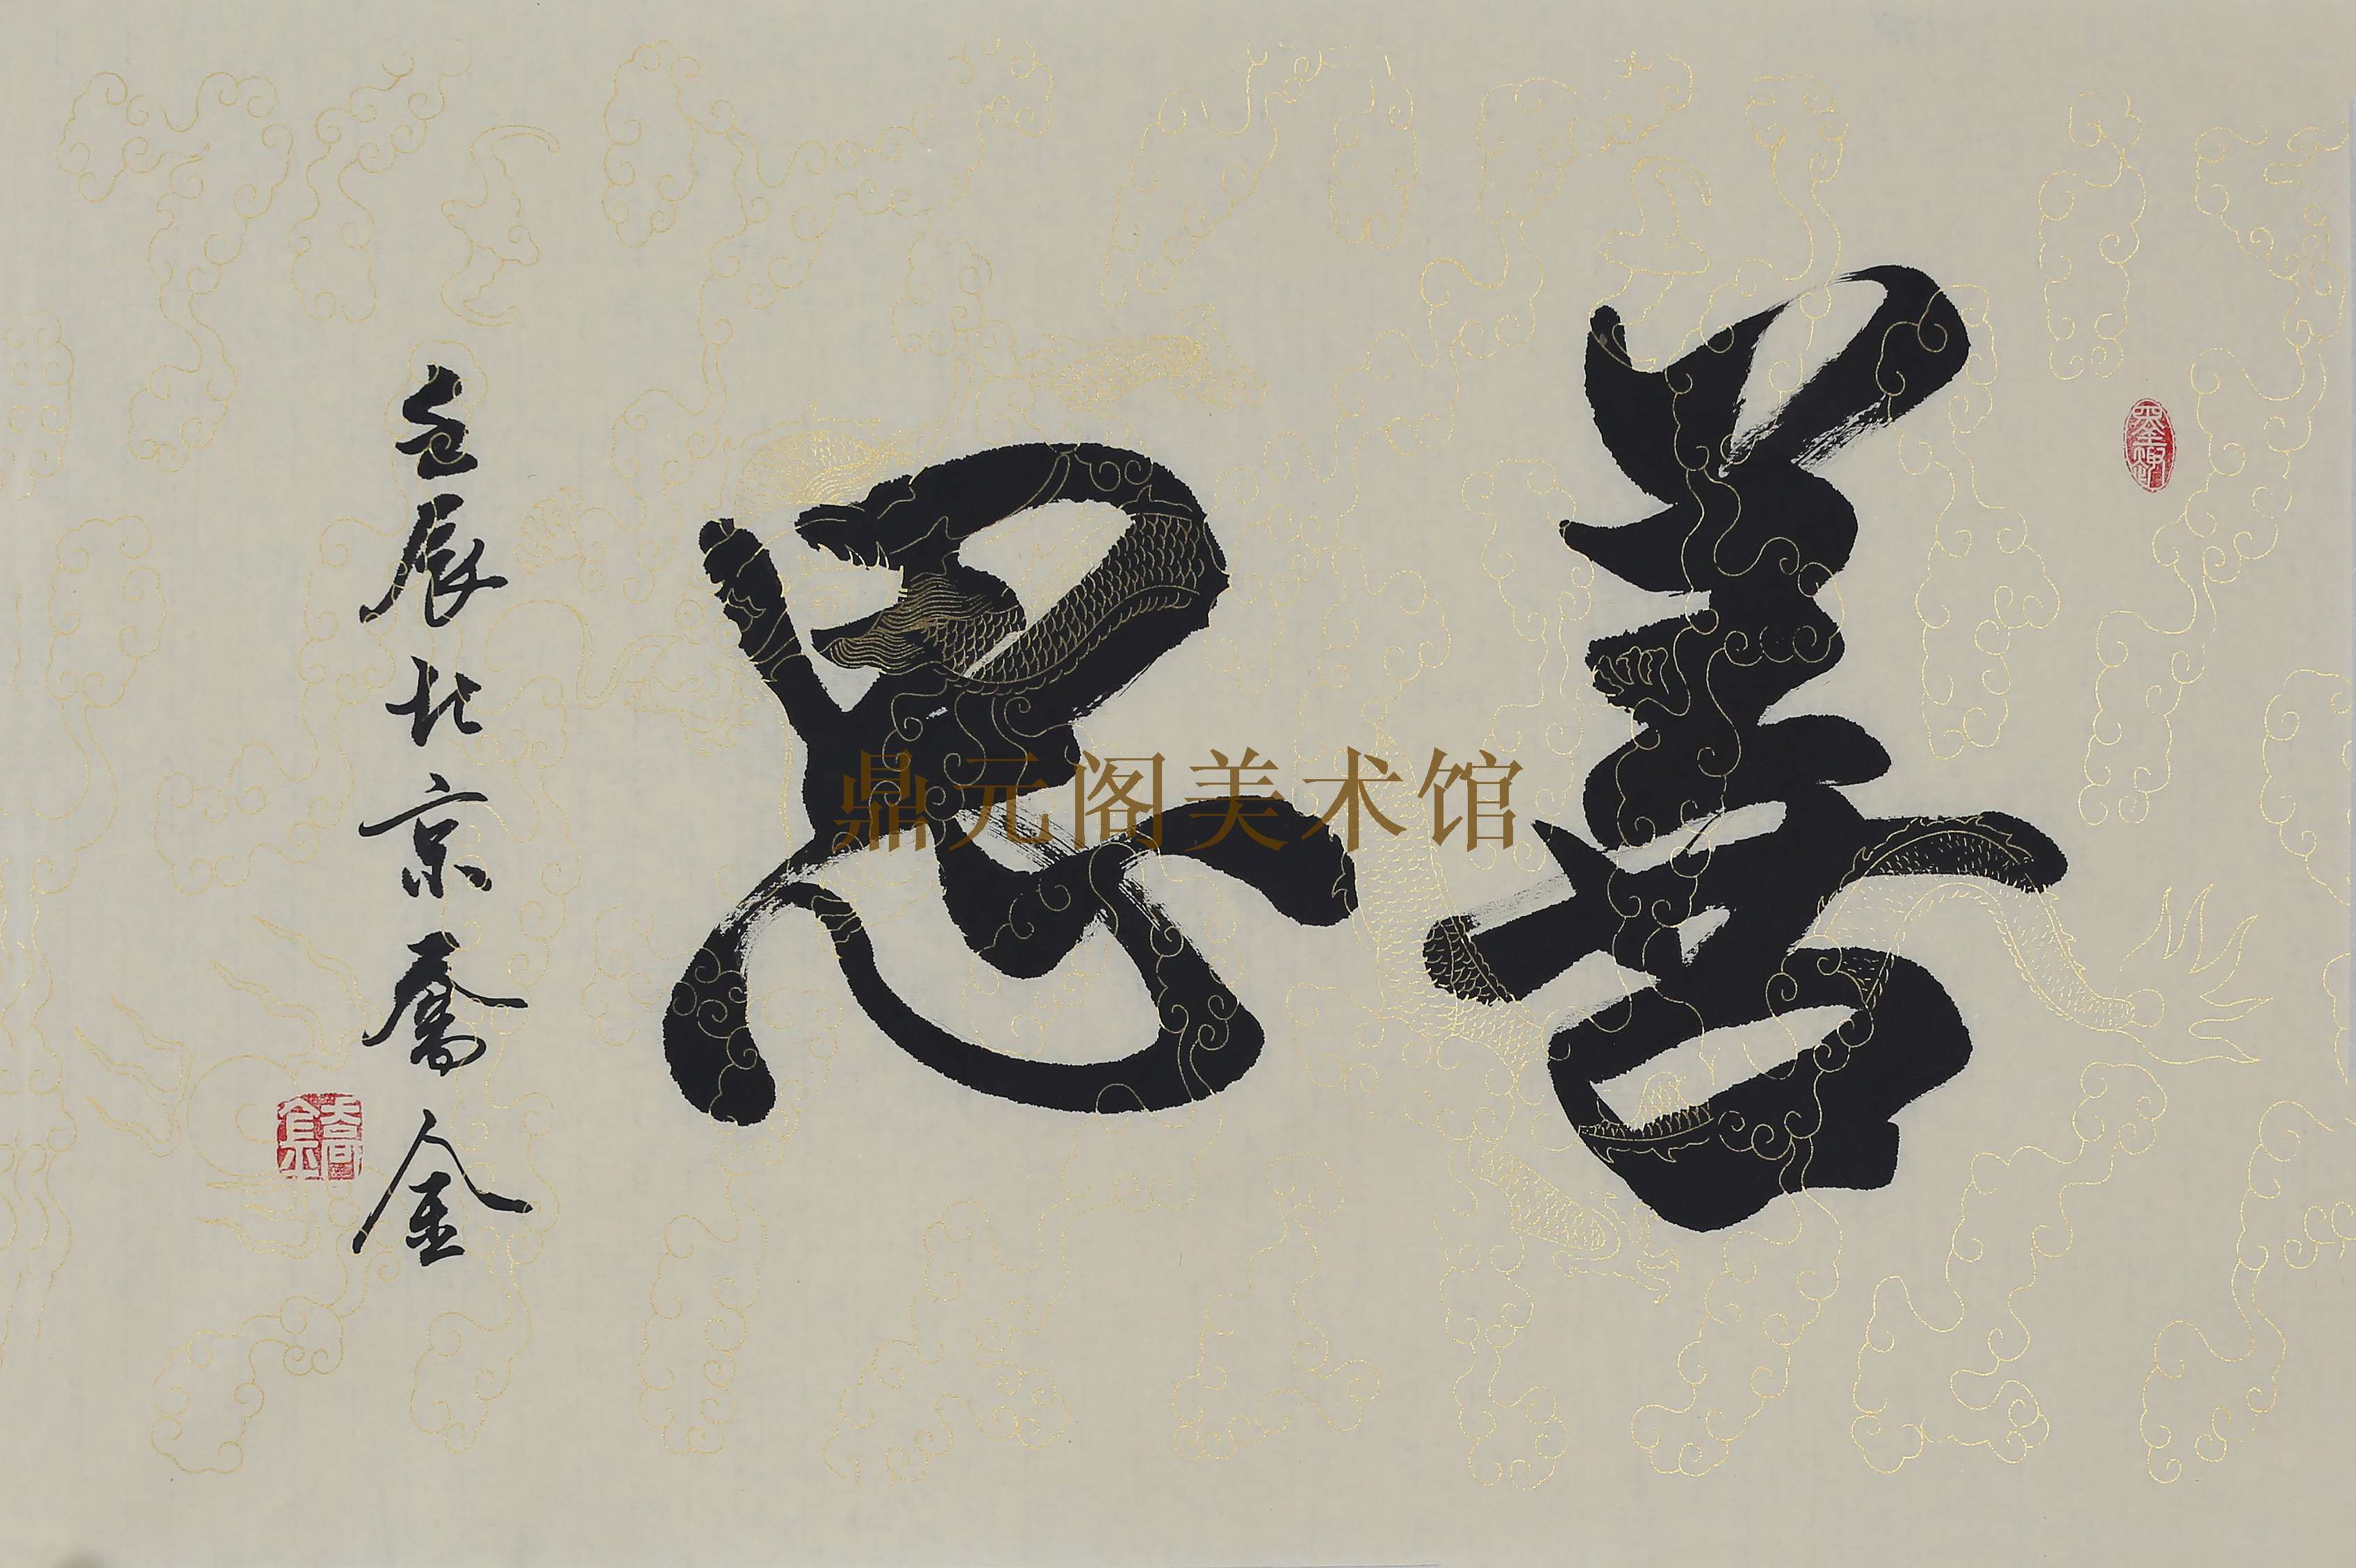 善思
壬辰北京喬金
喬金
鼎元阁美术馆